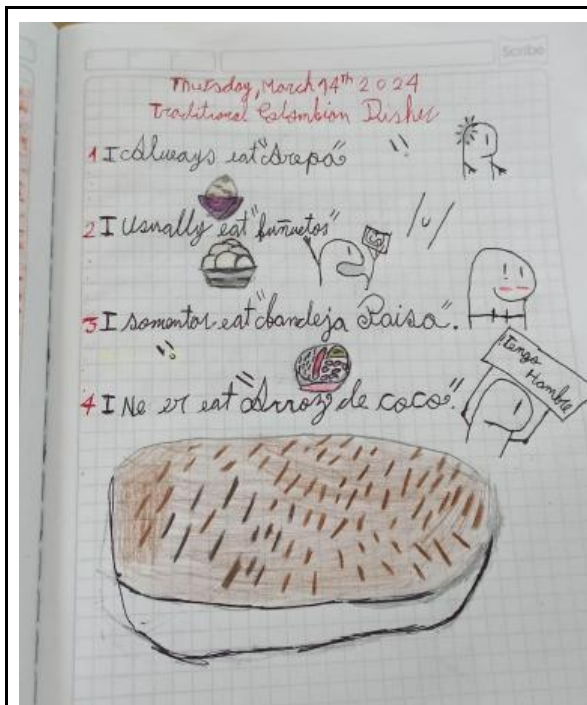 Scribe
Thursday, March 14th 2024
Traditional Colombian Dishes
1 I Always eat "Arepa"
2 I Usually eat "buñuelos"
3 I somentar eat "bandeja Paisa".
¡Tengo
Hambre
4 I Ne er eat "Arroz de coco".